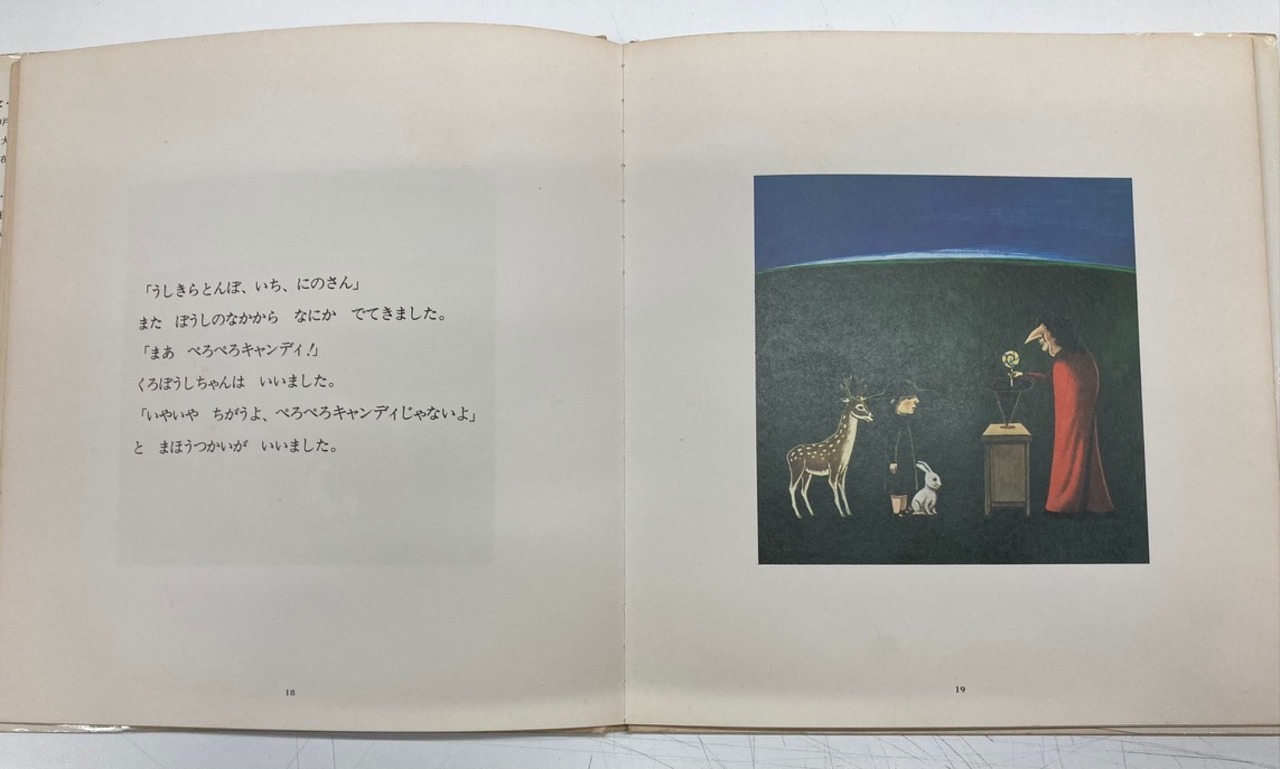 「うしきらとんぼ、いち、にのさん」
また　ぼうしのなかから　なにか　でてきました。
「まあ　ぺろぺろキャンディ！」
くろぼうしちゃんは　いいました。
「いやいや　ちがうよ、ぺろぺろキャンディじゃないよ」
と　まほうつかいが　いいました。
18
19